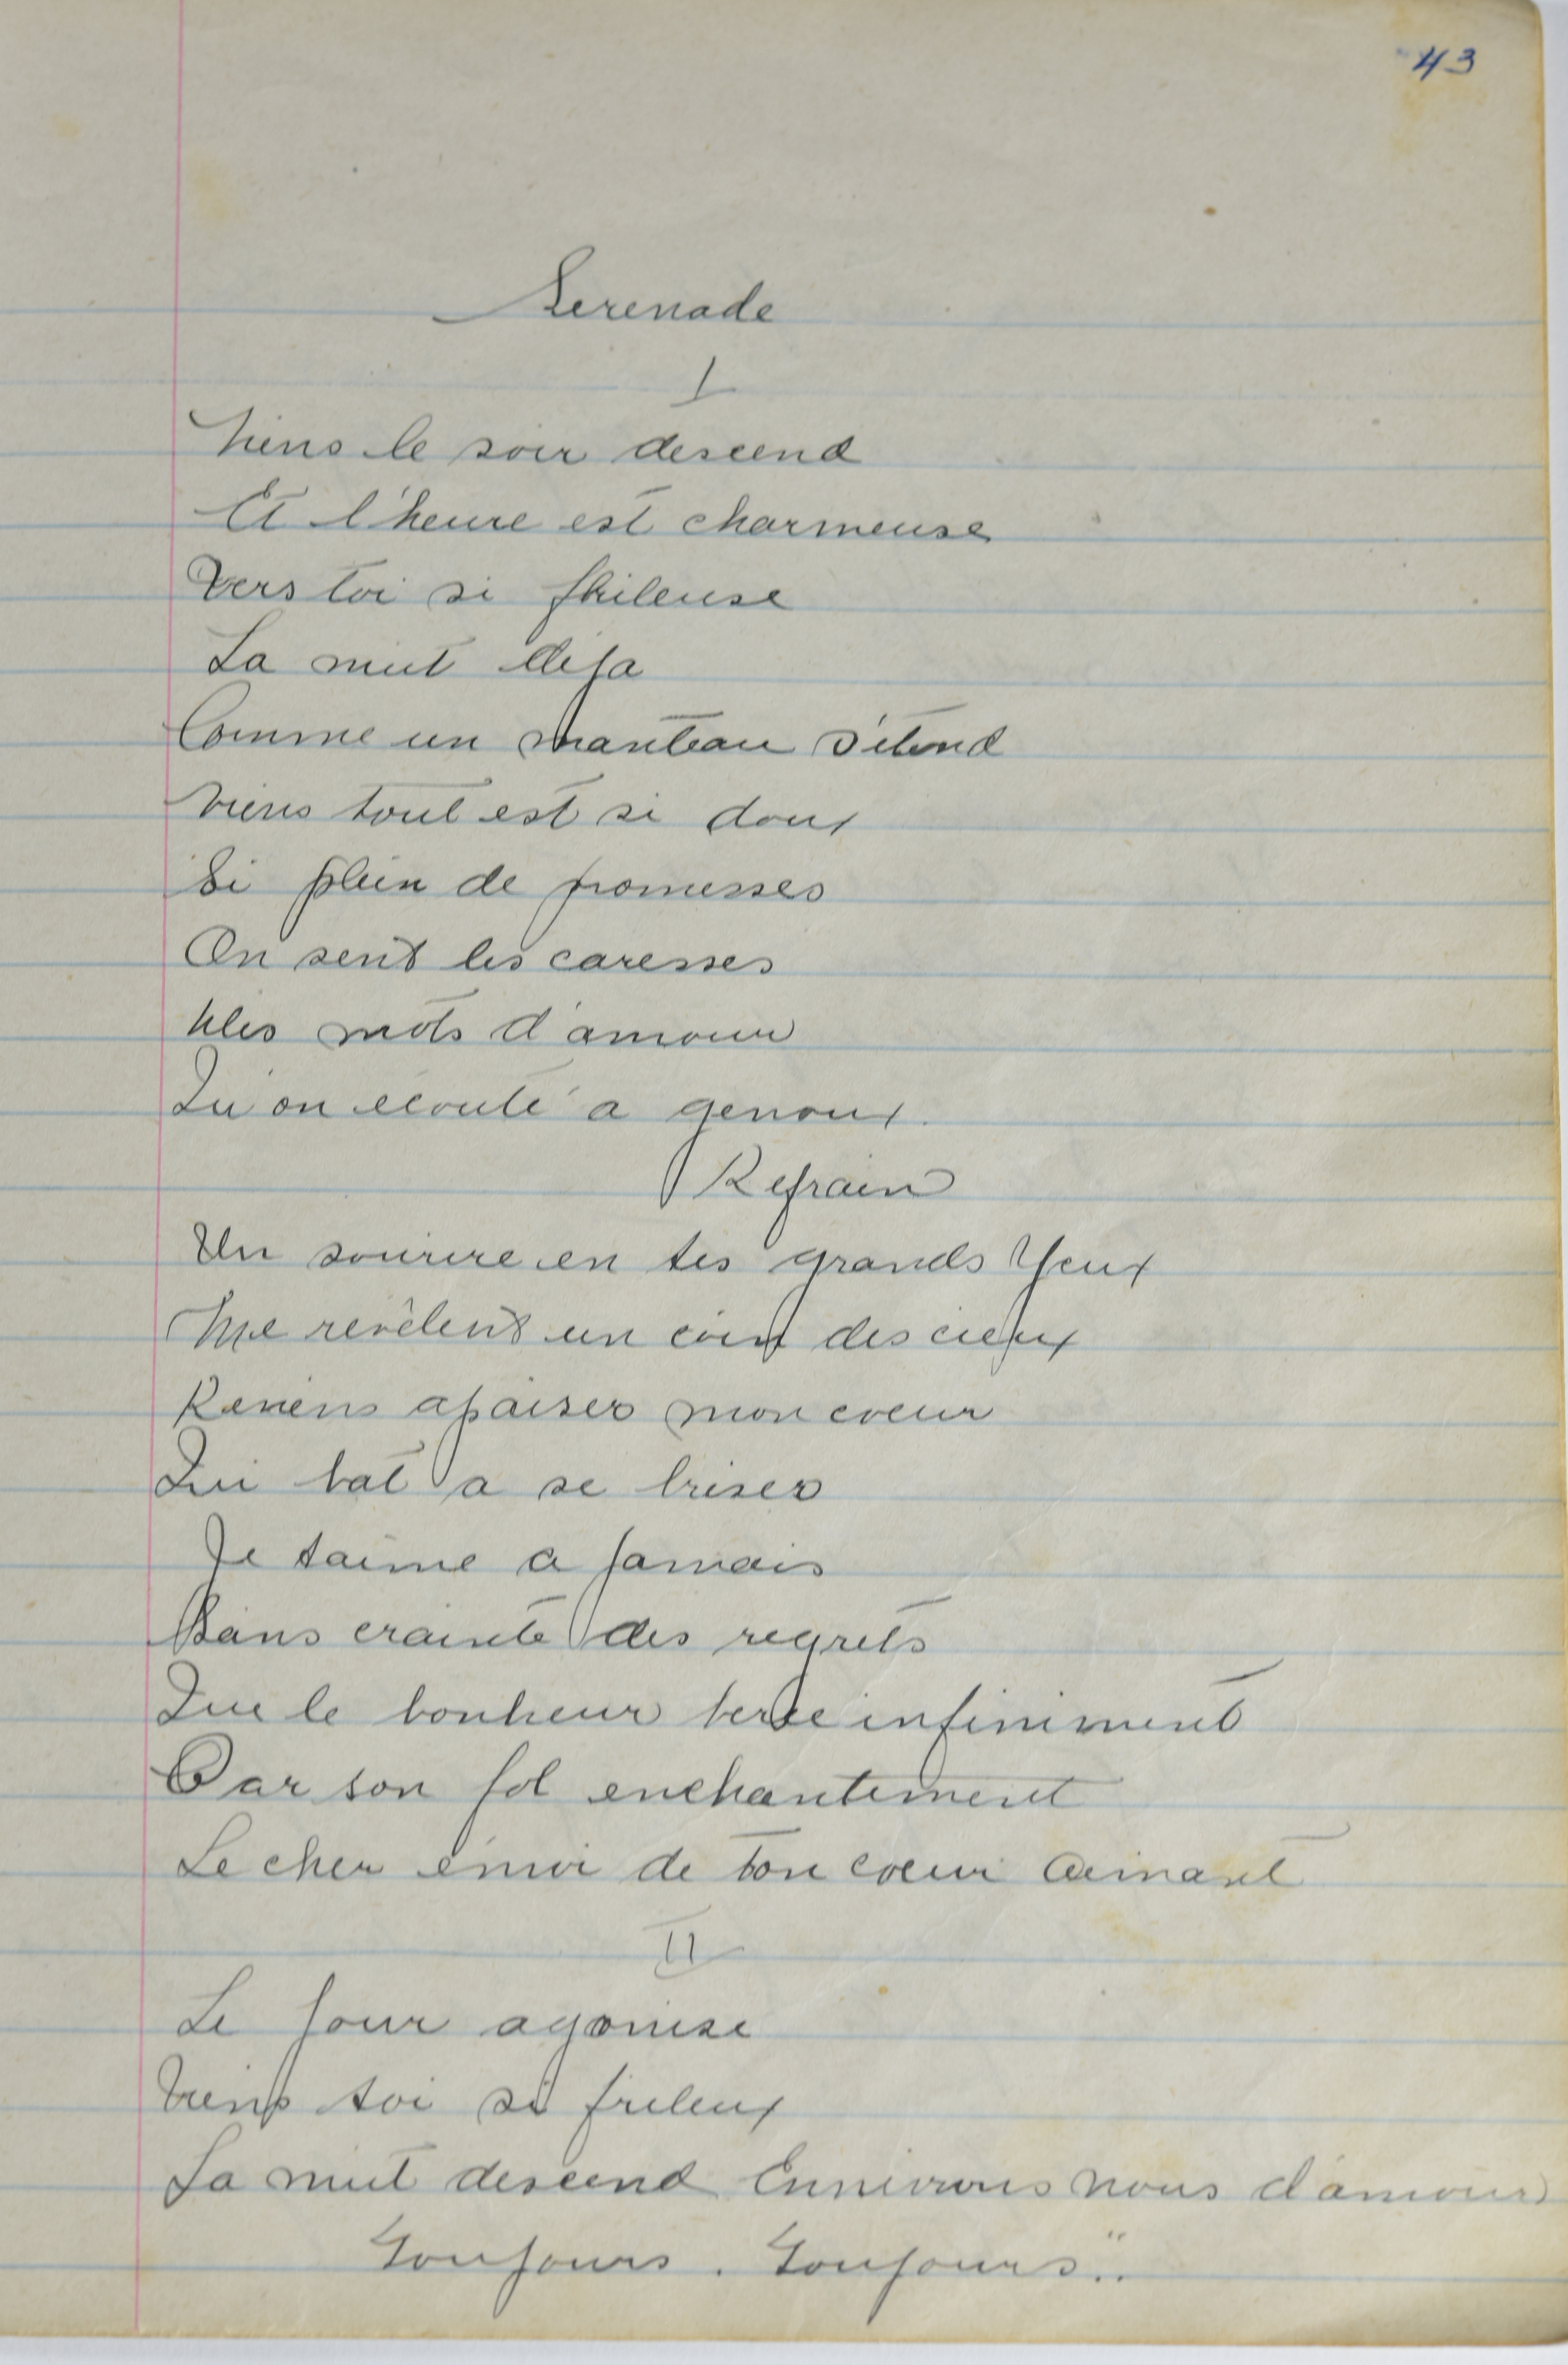 43
Serenade
I
Viens le soir descend
Et l'heure est charmeuse
Vers toi si frileuse
La nuit deja
Comme un manteau s'étend
Viens tout est si doux
Si plein de promesses
On sent les caresses
Des mots d'amour
Qu'on ecoute a genoux.
Refrain
Un sourire en tes grands Yeux
Me revèlent un coin des cieux
Reviens apaiser mon coeur
Qui bat a se briser
Je t'aime a jamais
Sans crainte des regrets
Que le bonheur berce infiniment
Par son fol enchantement
Le cher émoi de ton coeur aimant
II
Le jour agonise
Viens toi si frileux
La nuit descend Ennivrons nous d'amour
Toujours. Toujours..